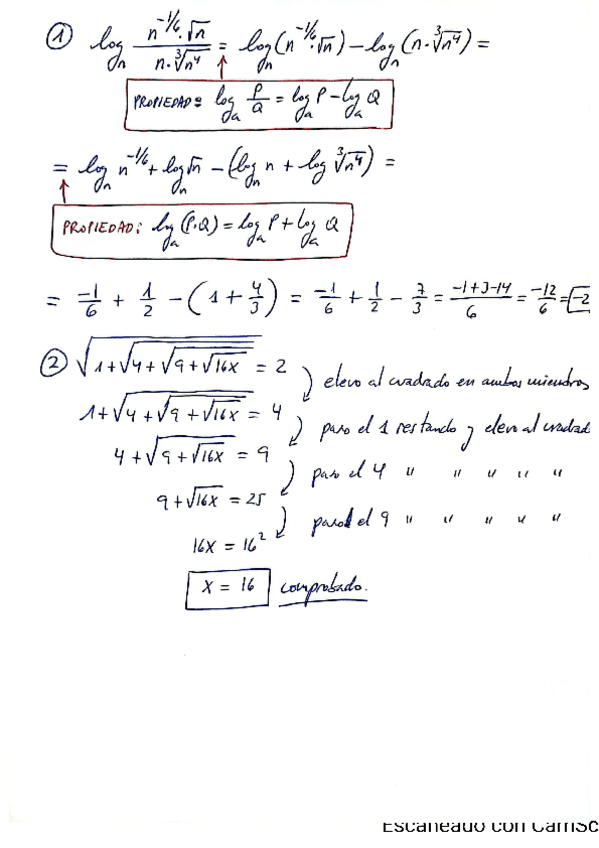 ① logₙ (n^(-1/6)·√n)/(n·∛n⁴) = logₙ(n^(-1/6)·√n) − logₙ(n·∛n⁴) =
PROPIEDAD: logₐ P/Q = logₐ P − logₐ Q
= logₙ n^(-1/6) + logₙ √n − (logₙ n + logₙ ∛n⁴) =
PROPIEDAD: logₐ (P·Q) = logₐ P + logₐ Q
= -1/6 + 1/2 − (1 + 4/3) = -1/6 + 1/2 − 7/3 = (-1+3-14)/6 = -12/6 = -2
② √(1+√(4+√(9+√(16x)))) = 2 elevo al cuadrado en ambos miembros
1+√(4+√(9+√(16x))) = 4 paso el 1 restando y elevo al cuadrad
4+√(9+√(16x)) = 9 paso el 4 " " " " "
9+√(16x) = 25 paso el 9 " " " " "
16x = 16²
x = 16 comprobado.
Escaneado con CamSc